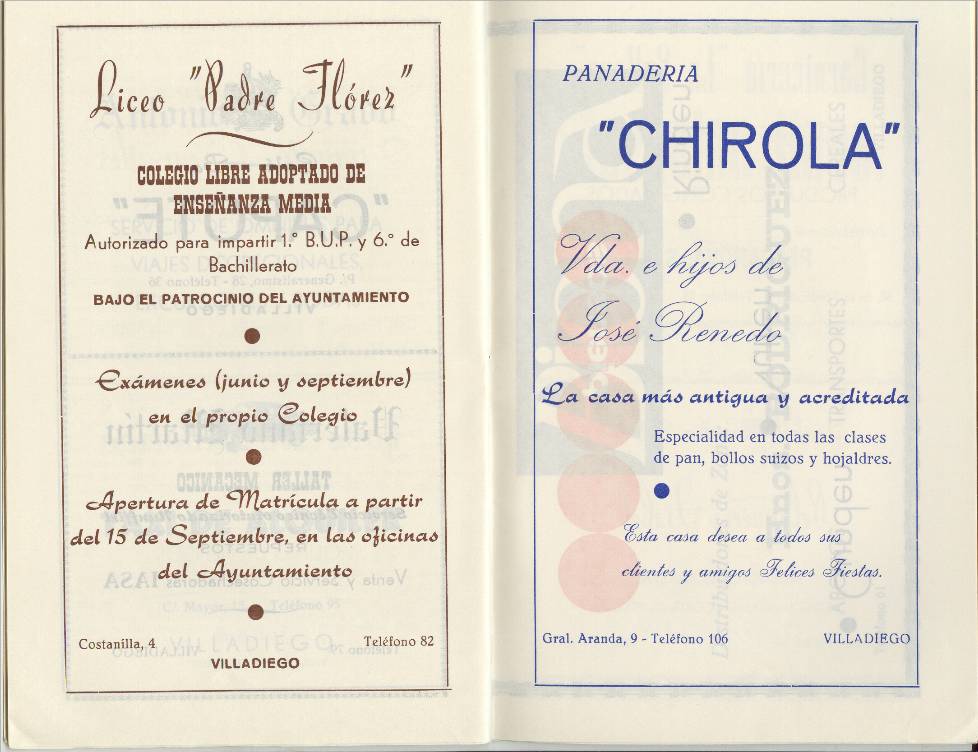 Liceo "Padre Flórez"
COLEGIO LIBRE ADOPTADO DE
ENSEÑANZA MEDIA
Autorizado para impartir 1.º B.U.P. y 6.º de
Bachillerato
BAJO EL PATROCINIO DEL AYUNTAMIENTO
Exámenes (junio y septiembre)
en el propio Colegio
Apertura de Matrícula a partir
del 15 de Septiembre, en las oficinas
del Ayuntamiento
Costanilla, 4 Teléfono 82
VILLADIEGO
PANADERIA
"CHIROLA"
Vda. e hijos de
José Renedo
La casa más antigua y acreditada
Especialidad en todas las clases
de pan, bollos suizos y hojaldres.
Esta casa desea a todos sus
clientes y amigos Felices Fiestas.
Gral. Aranda, 9 - Teléfono 106 VILLADIEGO